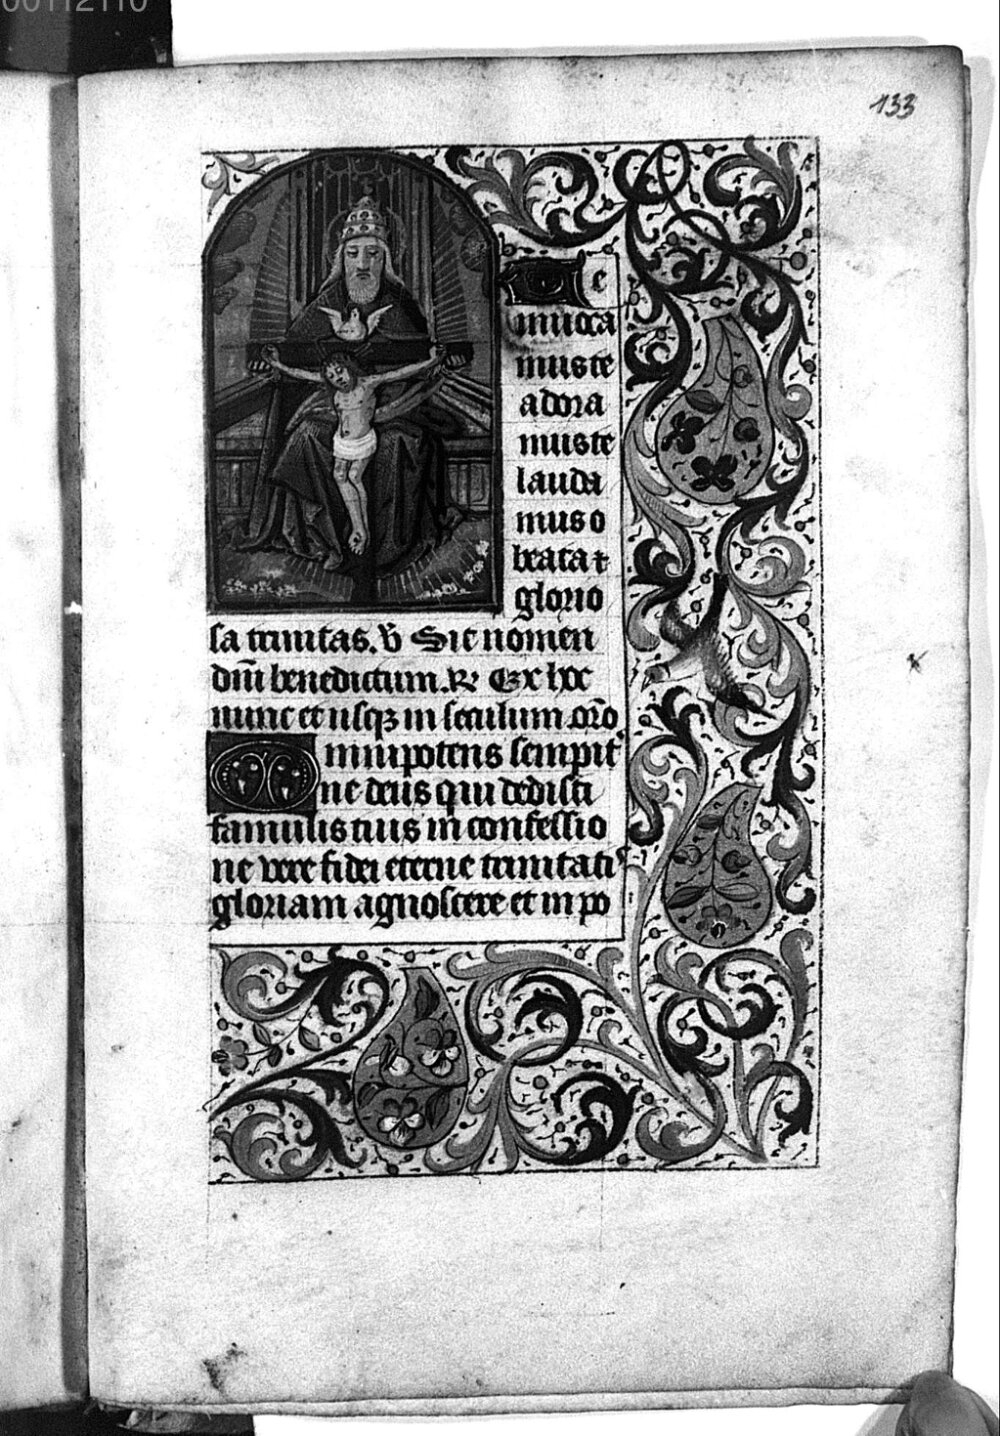 00112110
133
Te
inuoca
muste
adora
muste
lauda
mus o
beata ⁊
glorio
sa trinitas. V̄ Sit nomen
dñi benedictum. R Ex hoc
nunc et usqꝫ in seculum. orõ
Omnipotens sempit᷑
ne deus qui dedisti
famulis tuis in confessio
ne vere fidei eterne trinitatꝰ
gloriam agnoscere et in po